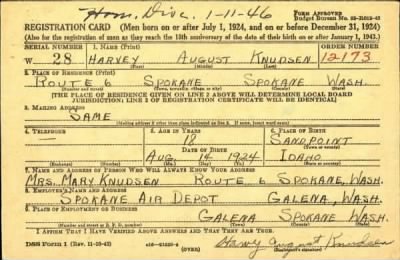 Hon. Disc. 1-11-46
FORM APPROVED
Budget Bureau No. 33-R012-43
REGISTRATION CARD (Men born on or after July 1, 1924, and on or before December 31, 1924)
(Also for the registration of men as they reach the 18th anniversary of the date of their birth on or after January 1, 1943.)
SERIAL NUMBER 1. NAME (Print) ORDER NUMBER
W 28 HARVEY AUGUST KNUDSEN 12173
(First) (Middle) (Last)
2. PLACE OF RESIDENCE (Print)
ROUTE 6 SPOKANE SPOKANE WASH.
(Number and street) (Town, township, village, or city) (County) (State)
[THE PLACE OF RESIDENCE GIVEN ON LINE 2 ABOVE WILL DETERMINE LOCAL BOARD
JURISDICTION; LINE 2 OF REGISTRATION CERTIFICATE WILL BE IDENTICAL]
3. MAILING ADDRESS
SAME
[Mailing address if other than place indicated on line 2. If same insert word same]
4. TELEPHONE 5. AGE IN YEARS 6. PLACE OF BIRTH
— 18 SANDPOINT
DATE OF BIRTH (Town or county)
AUG. 14 1924 IDAHO
(Exchange) (Number) (Mo.) (Day) (Yr.) (State or country)
7. NAME AND ADDRESS OF PERSON WHO WILL ALWAYS KNOW YOUR ADDRESS
MRS. MARY KNUDSEN ROUTE 6 SPOKANE, WASH.
8. EMPLOYER'S NAME AND ADDRESS
SPOKANE AIR DEPOT GALENA, WASH.
9. PLACE OF EMPLOYMENT OR BUSINESS
GALENA SPOKANE WASH
(Number and street or R. F. D. number) (Town) (County) (State)
I AFFIRM THAT I HAVE VERIFIED ABOVE ANSWERS AND THAT THEY ARE TRUE.
DSS Form 1 (Rev. 11-10-42) (OVER) Harvey August Knudsen
(Registrant's signature)